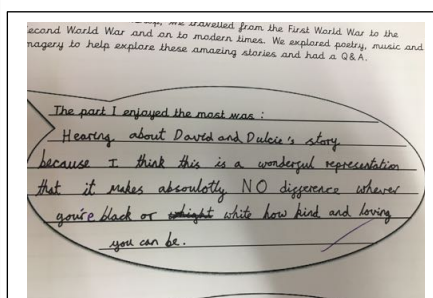 we travelled from the First World War to the
econd World War and on to modern times. We explored poetry, music and
magery to help explore these amazing stories and had a Q&A.
The part I enjoyed the most was :
Hearing about David and Dulcie's story
because I think this is a wonderful representation
that it makes absoulotly NO difference wherever
you're black or white how kind and loving
you can be.